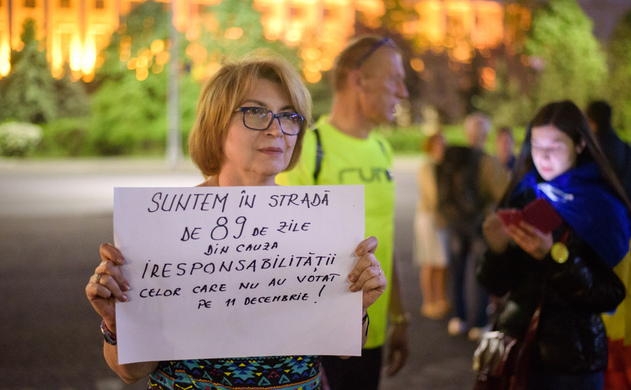 SUNTEM ÎN STRADĂ
DE 89 DE ZILE
DIN CAUZA
IRESPONSABILITĂȚII
CELOR CARE NU AU VOTAT
PE 11 DECEMBRIE!